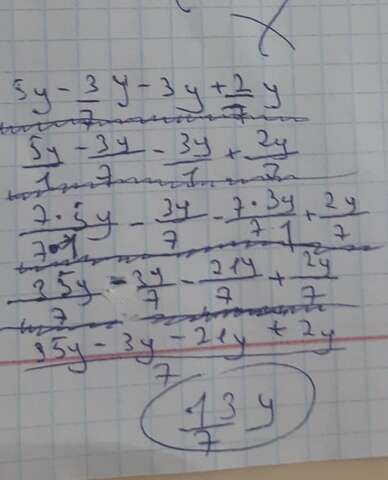 5y - 3/7 y - 3y + 2/7 y
5y/1 - 3y/7 - 3y/1 + 2y/7
7·5y/7·1 - 3y/7 - 7·3y/7 1 + 2y/7
35y/7 - 3y/7 - 21y/7 + 2y/7
35y - 3y - 21y + 2y/7
13/7 y